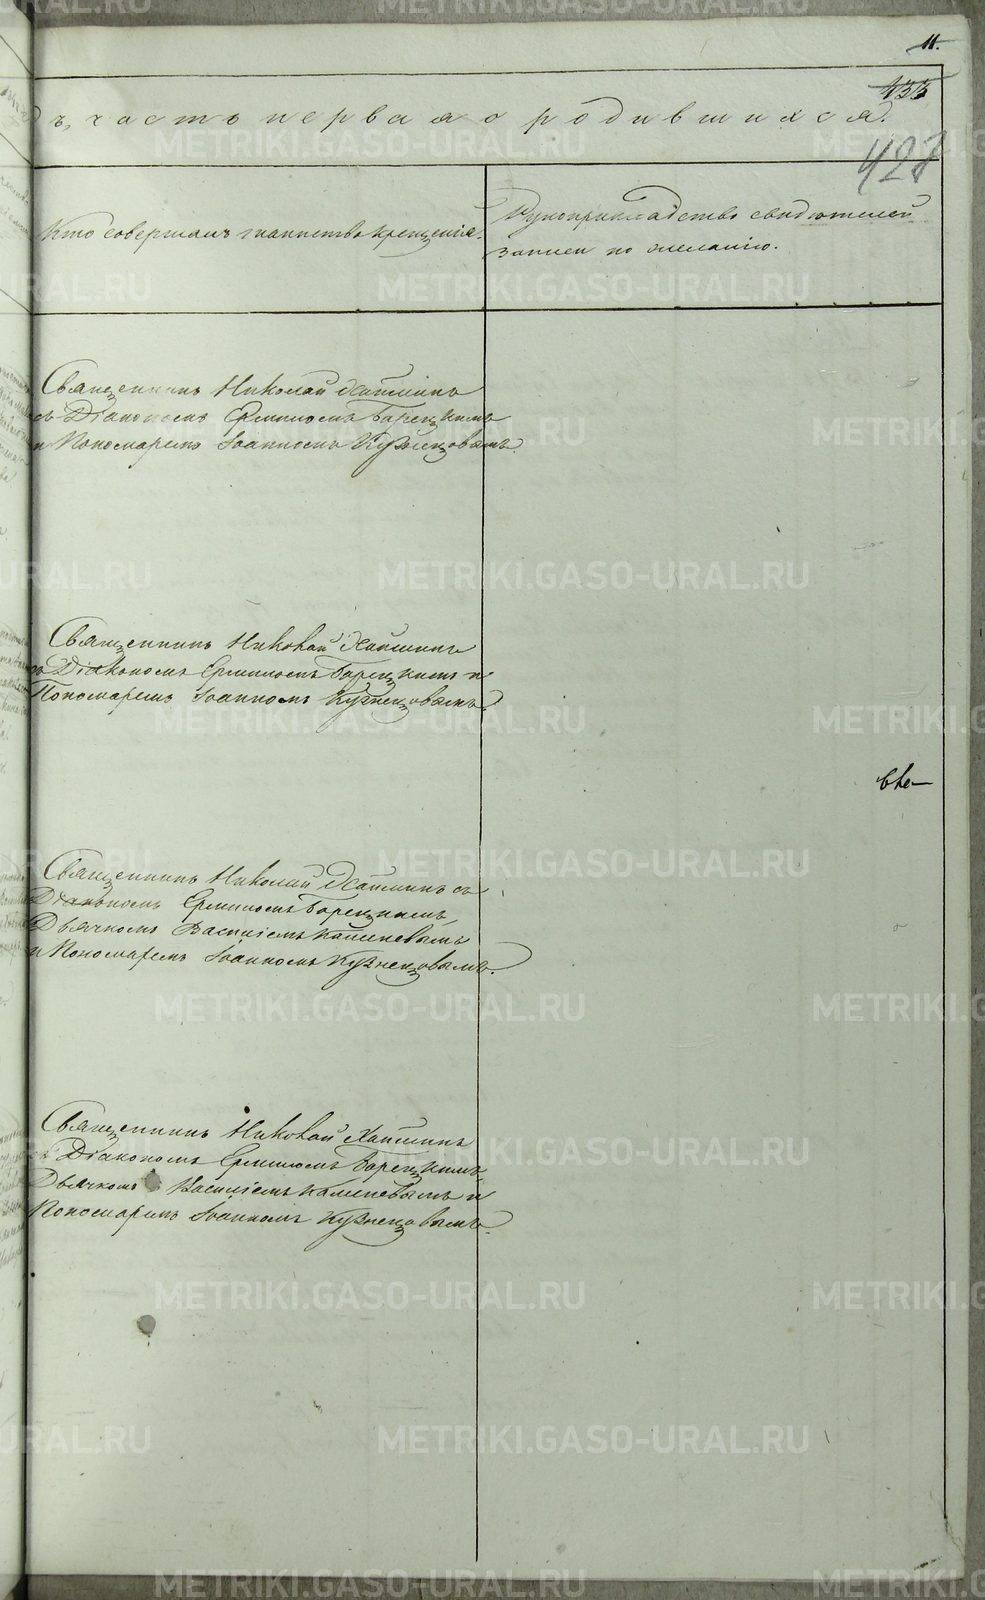 11.
433
дъ, часть первая о родившихся.
427
Кто совершалъ таинство крещенія.
Рукоприкладство свидѣтелей
записи по желанію.
Священникъ Николай
съ Діакономъ Ермиломъ Барецкимъ
и Пономаремъ Іоанномъ Кузнецовымъ.
Священникъ Николай
съ Діакономъ Ермиломъ Барецкимъ и
Пономаремъ Іоанномъ Кузнецовымъ.
Священникъ Николай съ
Діакономъ Ермиломъ Барецкимъ,
Дьячкомъ Василіемъ Каменевымъ
и Пономаремъ Іоанномъ Кузнецовымъ.
Священникъ Николай
съ Діакономъ Ермиломъ Барецкимъ,
Дьячкомъ Василіемъ Каменевымъ и
Пономаремъ Іоанномъ Кузнецовымъ.
METRIKI.GASO-URAL.RU